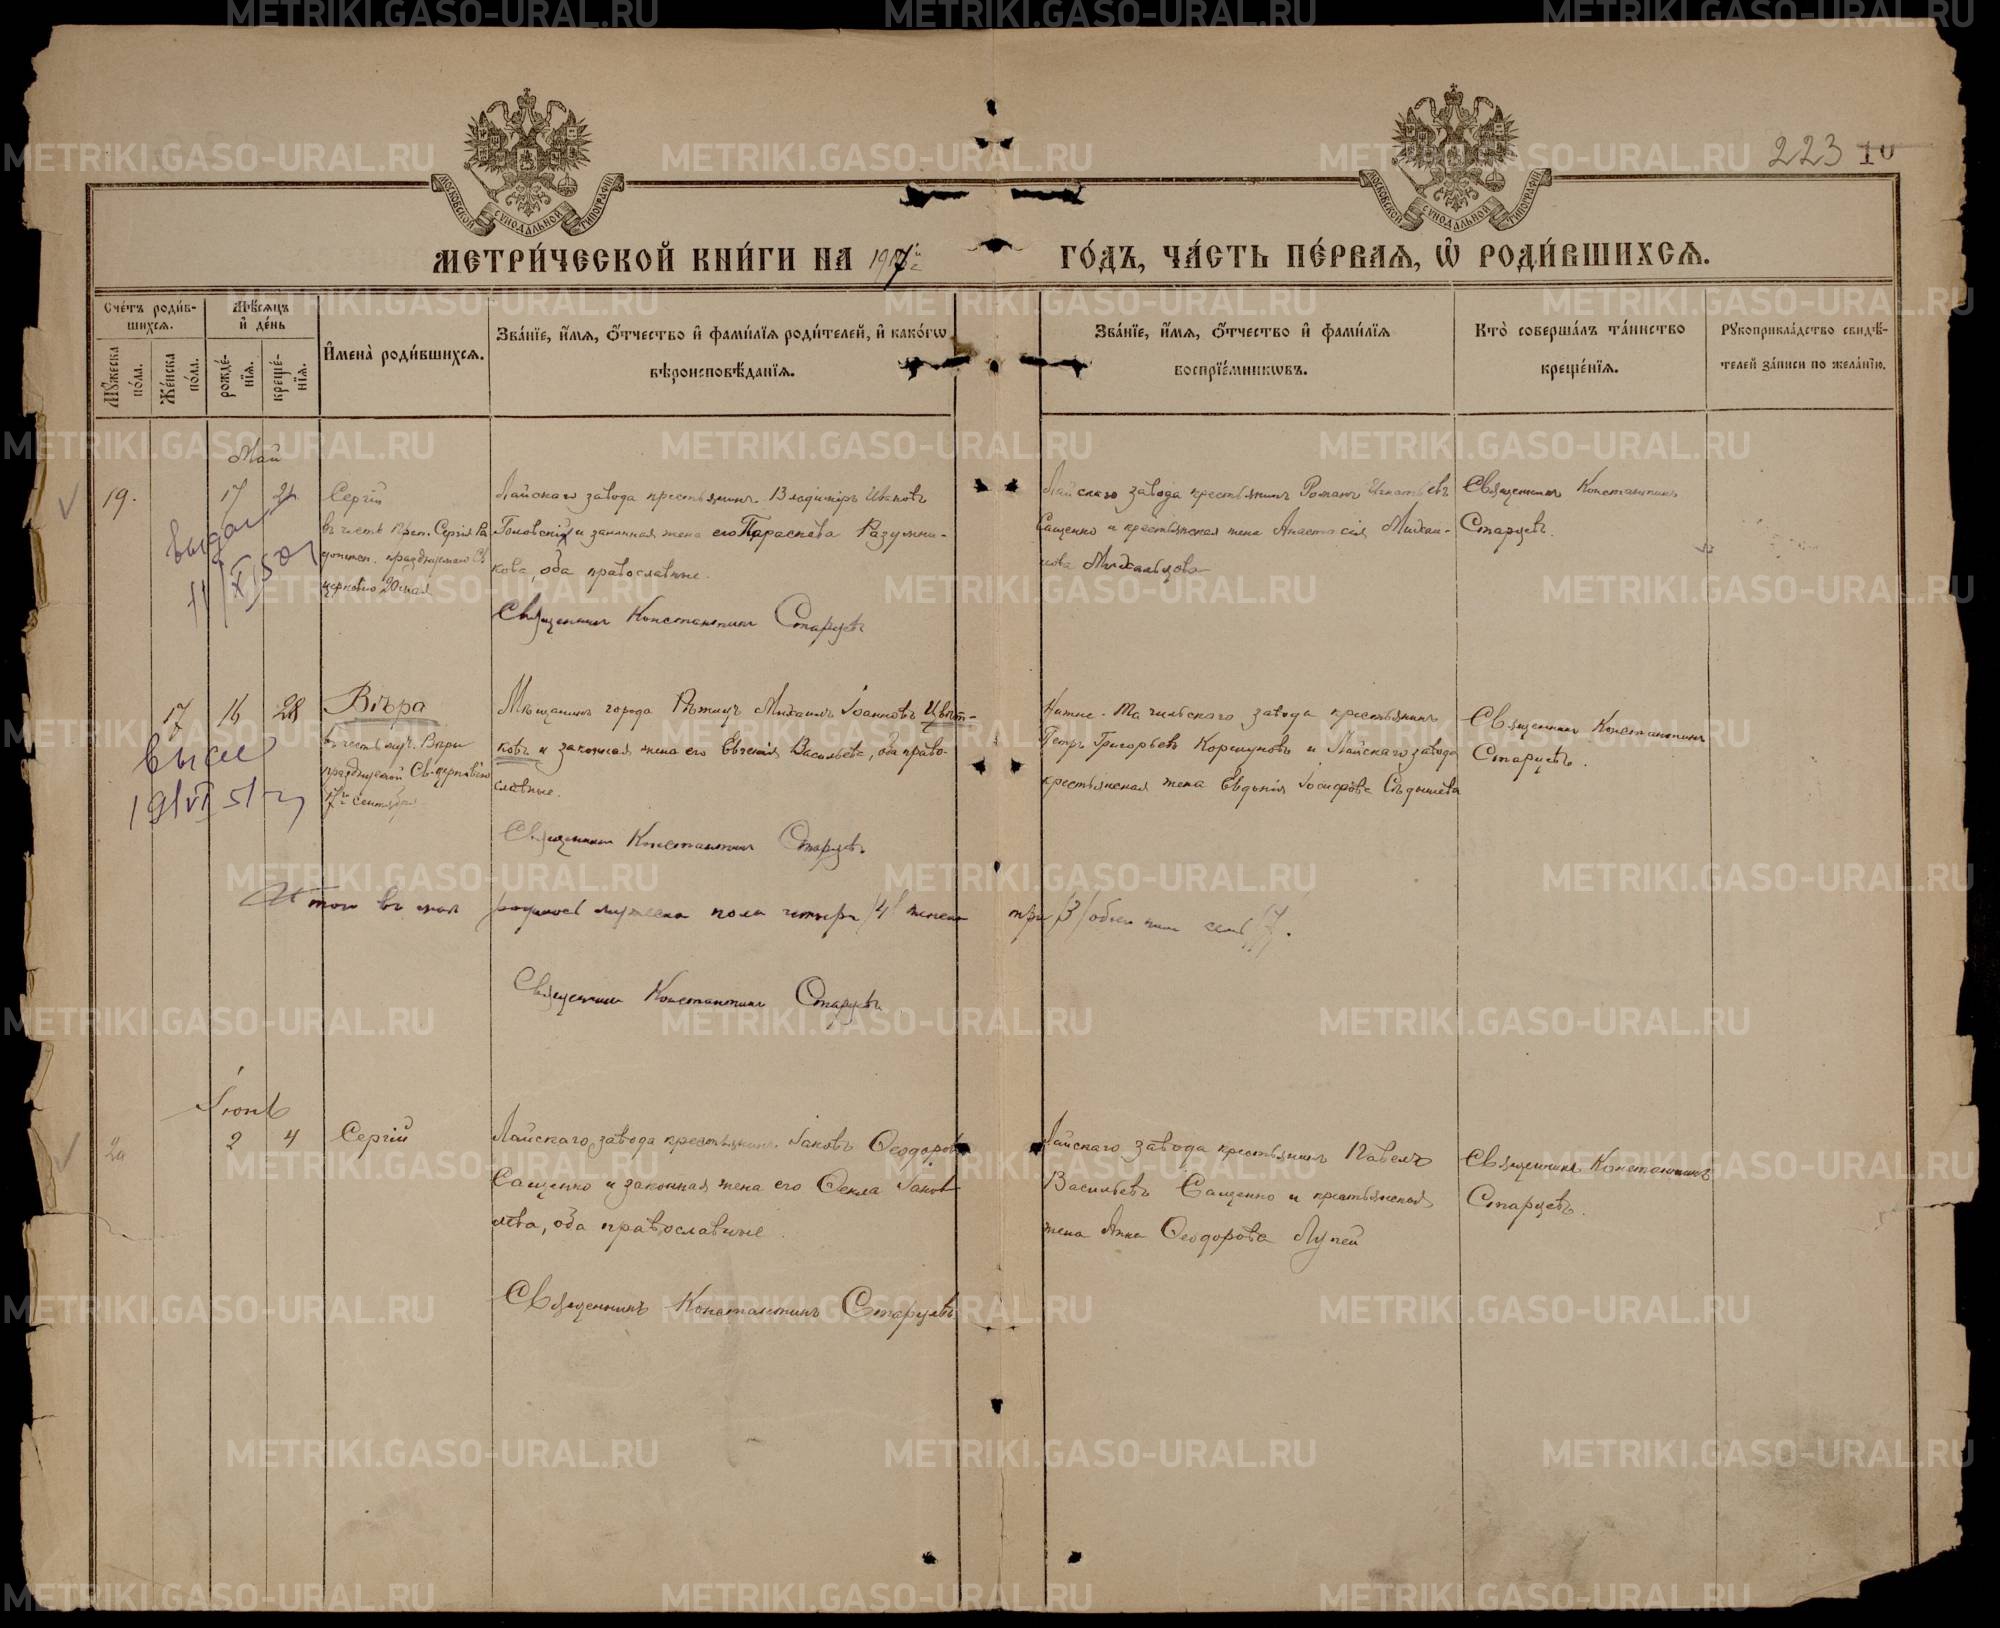 223 10
МОСКОВСКОЙ СУНОДАЛЬНОЙ ТИПОГРАФІИ
МОСКОВСКОЙ СУНОДАЛЬНОЙ ТИПОГРАФІИ
МЕТРИ́ЧЕСКОЙ КНИ́ГИ НА 1917й ГО́ДЪ, ЧА́СТЬ ПЕ́РВАѦ, Ѡ҆ РОДИ́ВШИХСѦ.
Сче́тъ роди́вшихсѧ.
Мꙋ́жеска по́ла.
Же́нска по́ла.
Мѣ́сѧцъ и҆ де́нь
рожде́нїѧ.
креще́нїѧ.
И҆мена̀ роди́вшихсѧ.
Зва́нїе, и҆́мѧ, ѻ҆́тчество и҆ фами́лїѧ роди́телей, и҆ како́гѡ вѣроисповѣ́данїѧ.
Зва́нїе, и҆́мѧ, ѻ҆́тчество и҆ фами́лїѧ воспрїе́мникѡвъ.
Кто̀ соверша́лъ та́инство креще́нїѧ.
Рꙋкоприкла́дство свидѣ́телей за́писи по жела́нїю.
Май
19. 17 21 Сергій
въ честь преп. Сергія Ра
донеж. празднуемаго Св
церковію 20 мая
Лайскаго завода крестьянинъ Владиміръ Ивановъ
Головскій и законная жена его Параскева Разумни-
кова, оба православные.
Священникъ Константинъ Старцевъ
Лайскаго завода крестьянинъ Романъ Игнатьевъ
Сащенко и крестьянская жена Анастасія Михаи-
лова
Священникъ Константинъ
Старцевъ.
17 16 28 Вѣра
въ честь муч. Вѣры
празднуемой Св. церковію
17го сентября
Мѣщанинъ города Рѣжицъ Михаилъ Іоанновъ Цвѣт-
ковъ и законная жена его Евгенія Васильева, оба право-
славные.
Священникъ Константинъ Старцевъ.
Нижне-Тагильскаго завода крестьянинъ
Петръ Григорьевъ Коршуновъ и Лайскаго завода
крестьянская жена Евдокія Іосифова Сѣдышева
Священникъ Константинъ
Старцевъ.
Итого въ маѣ родилось мужеска пола четыре /4/ женска три /3/ обоего пола семь /7/.
Священникъ Константинъ Старцевъ
Іюнь
20 2 4 Сергій
Лайскаго завода крестьянинъ Іаковъ Ѳеодоровъ
Сащенко и законная жена его Ѳекла Іаков-
лева, оба православные.
Священникъ Константинъ Старцевъ
Лайскаго завода крестьянинъ Павелъ
Васильевъ Сащенко и крестьянская
жена Анна Ѳеодорова Лупей
Священникъ Константинъ
Старцевъ.
METRIKI.GASO-URAL.RU